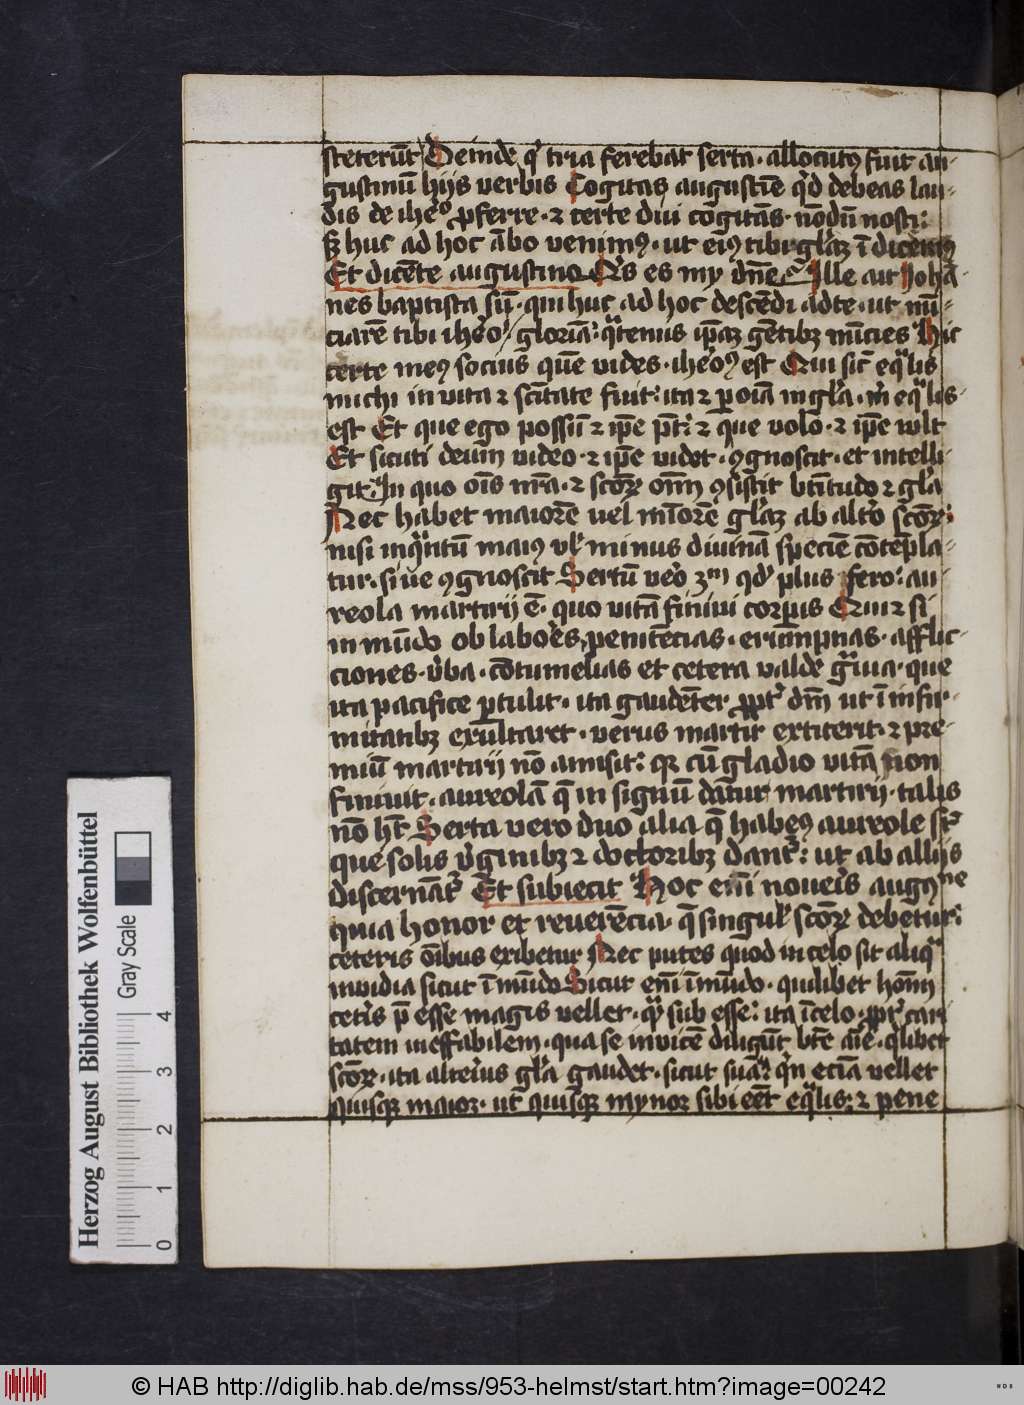 steterūt Deinde q' tria ferebat serta · allocut9 fuit au-
gustinū hijs verbis Cogitas augustīe q'd debeas lau-
dis de ihe'o pferre · ⁊ certe diu cōgitās · nōdū nosti:
huc ad hoc ābo venim9 · ut ei9 tibi gl'az ī dicem9
Et dicēte augustino Q's es my dn̄e Ille ait Iohā-
nes baptista sū · qui huc ad hoc descēdi ad te · ut nū-
ciarē tibi ihe'o / gloriā: q'tenus ip̄az gētibz nūcies Hic
certe me9 socius quē vides · ihe'o9 est Qui sic̄ eq'lis
michi in vita ⁊ sc̄itate fuit: ita ⁊ p oīa in gl'a · m' eq'lis
est Et que ego possū ⁊ ip̄e pt': ⁊ que volo · ⁊ ip̄e vult
Et sicuti deum video · ⁊ ip̄e videt · 9gnoscit · et intelli-
git · In quo oīs nr̄a · ⁊ sc̄oꝝ om̄ 9sistit bt̄itudo ⁊ gl'a
Nec habet maiorē uel mīorē gl'az ab alt'o sc̄oꝝ:
nisi inq'ntū mai9 vl' minus diuinā speciē cōtēpla-
tur · siue 9gnoscit Sertū ve'o 3m qd' plus fero: au-
reola martirij ē · quo vitā finiui corpis Qui ⁊ si
in mūdo ob labo'es, penitēcias · erūmpnas · afflic-
ciones · v'ba · cōtumelias et cetera valde g'uia · que
ita pacifice ptulit · ita gaudēter ppt' dm̄ ut ī infir-
mitatibz exultaret · verus martir extiterit · ⁊ pre-
miū martirij nō amisit: qr cū gladio vitā non
finiuit · aureolā q̄ in signū dātur martirij · talis
nō hȳt Serta vero duo alia q̄ habe9 aureole st'
que solis v'ginibz ⁊ doctoribz dant': ut ab alijs
discernāt' Et subiecit Hoc en̄i noue'is aug9ne
quia honor et reuerēcia · q̄ singul' sc̄oꝝ debetur:
ceteris oībus exibetur Nec putes quod in celo sit aliq'
inuidia sicut ī mūdo Sicut en̄i ī mūdo · quilibet hom̄
cet'is p̄ esse magis vellet · q' sub esse: ita ī celo · ppt' cari
tatem ineffabilem · qua se inuicē diligūt bt̄e aīe · q'libet
sc̄oꝝ · ita alte'ius gl'a gaudet · sicut sua q'n eciā vellet
quisque maioꝛ · ut quisque mynoꝛ sibi eēt eq'lis: ⁊ pene
Herzog August Bibliothek Wolfenbüttel
Gray Scale
0 1 2 3 4
© HAB http://diglib.hab.de/mss/953-helmst/start.htm?image=00242